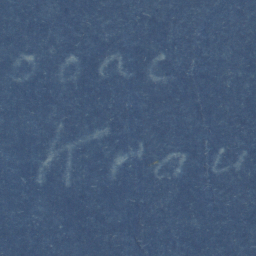 ooac
Krau